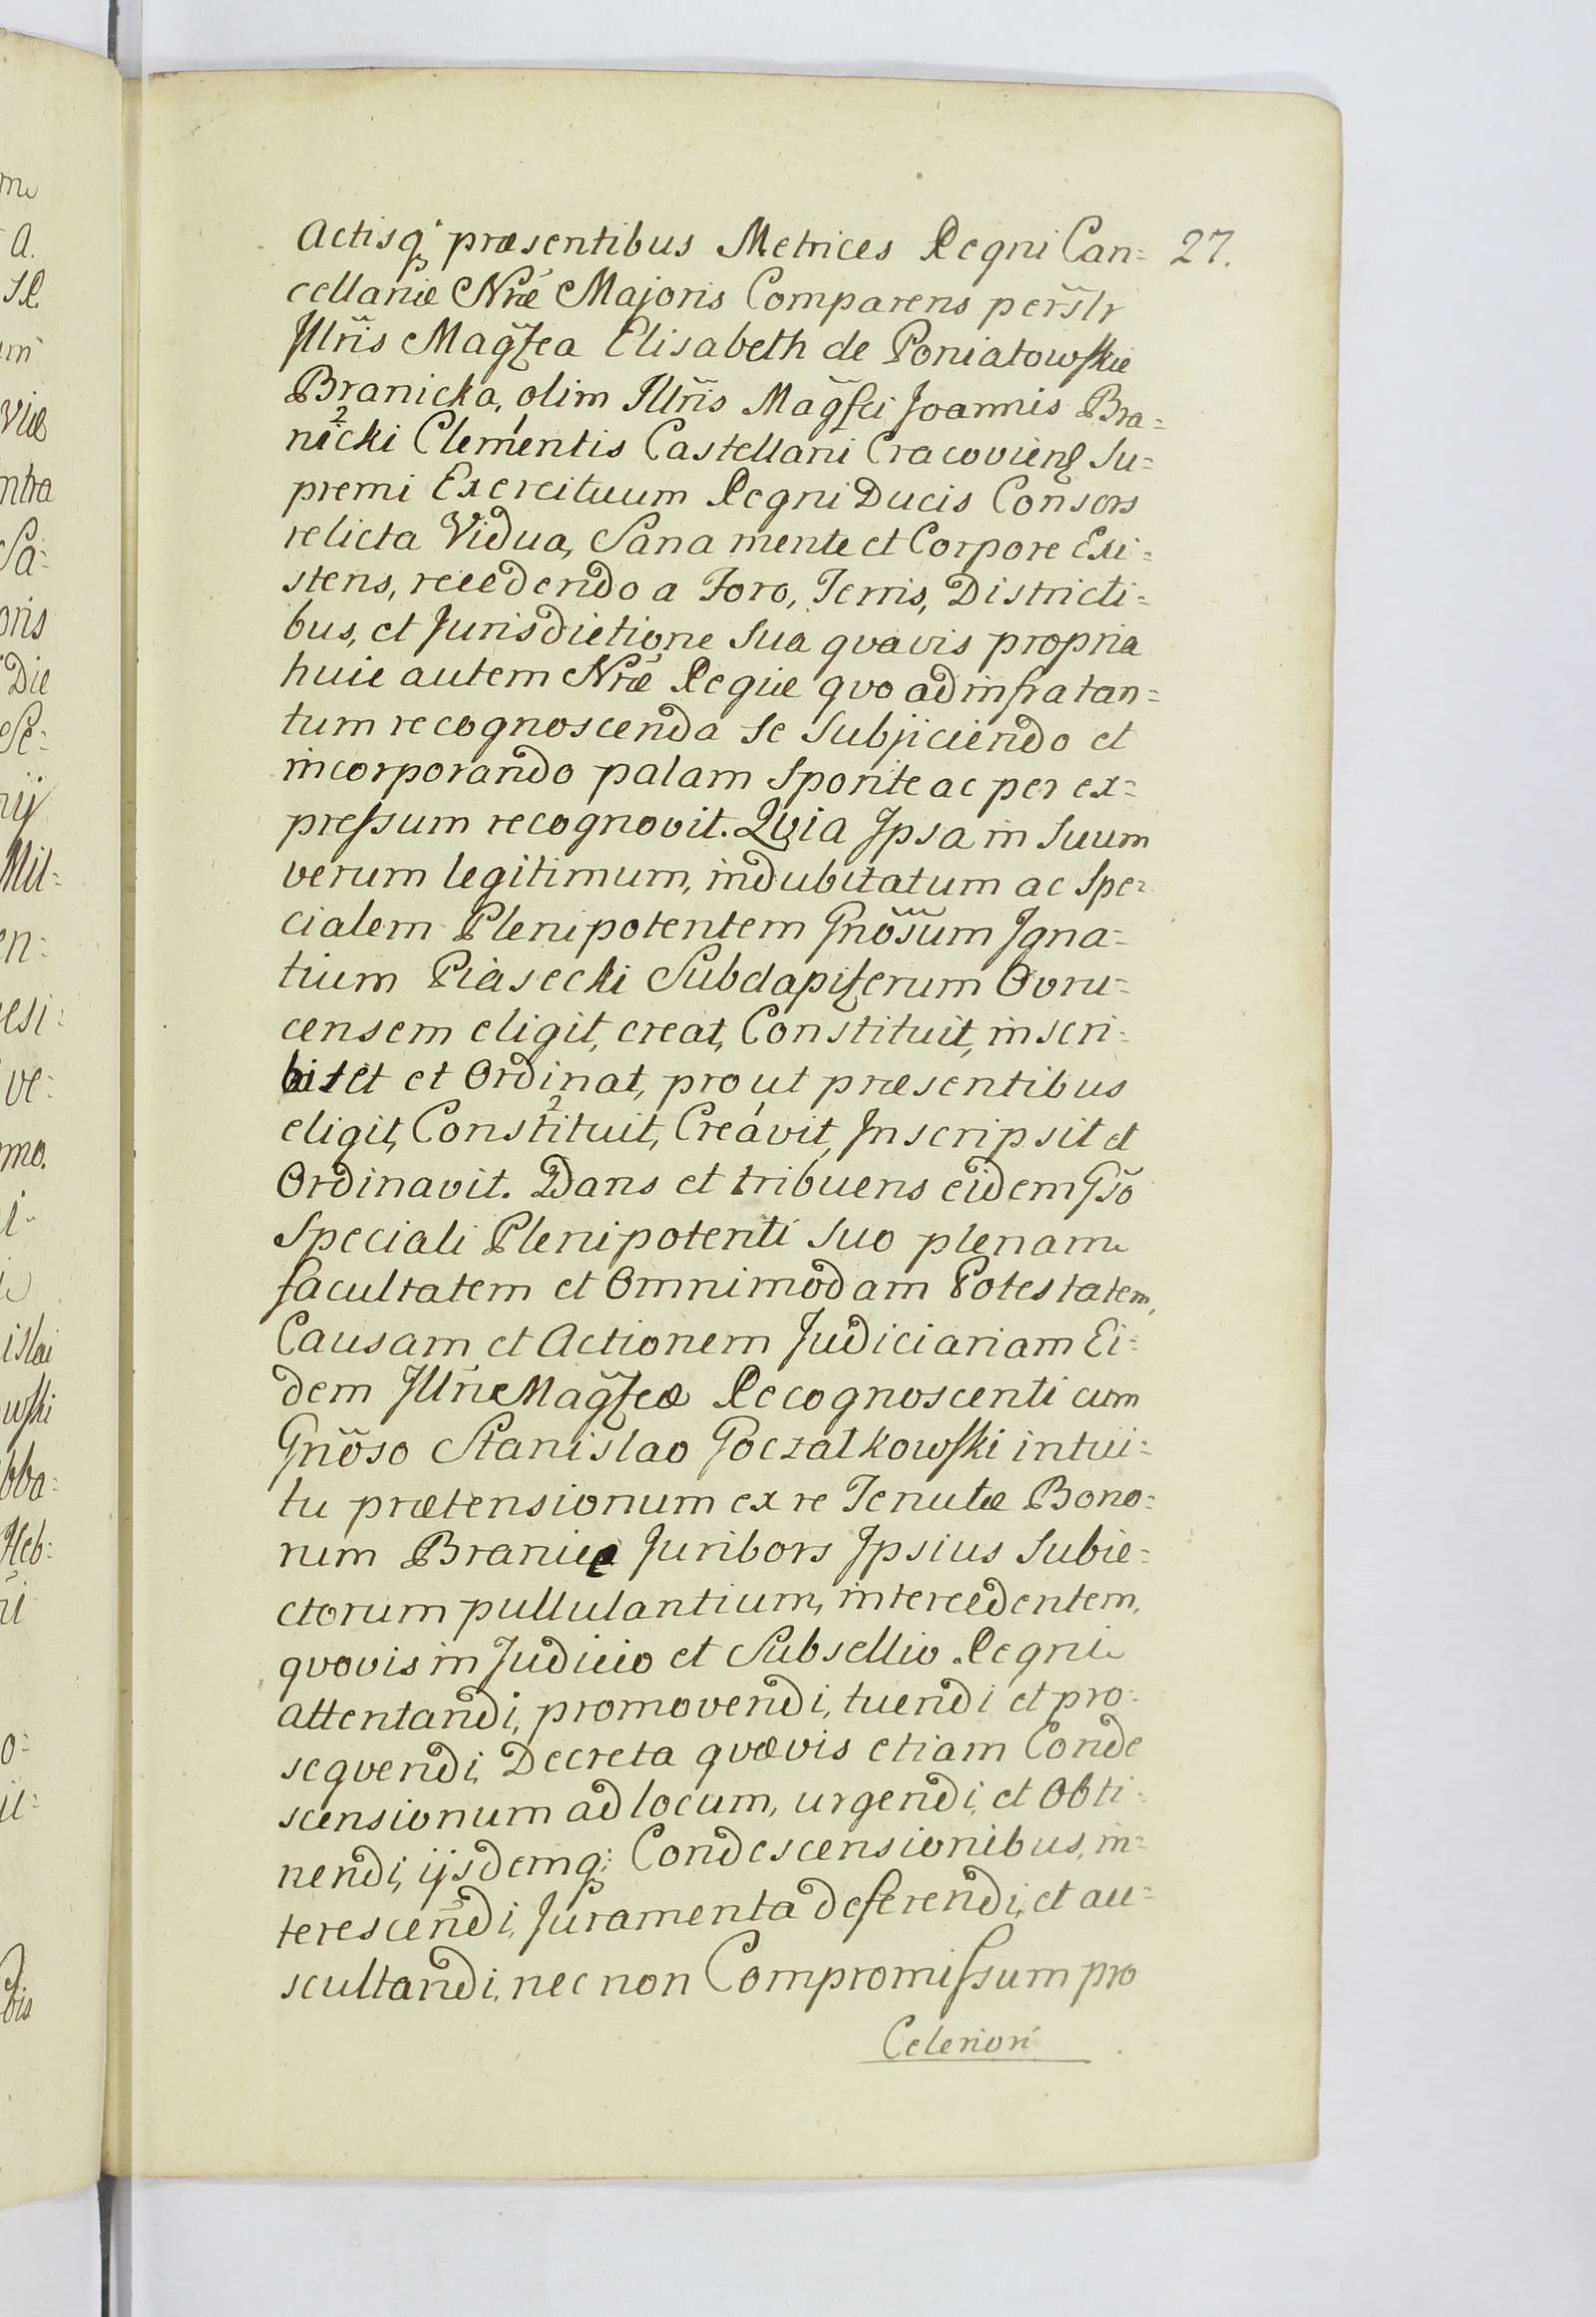 27.
Actisq́ præsentibus Metrices Regni Can=
cellariæ Nræ Majoris Comparens persl̃r
Jllñs Mag̃fca Elisabeth de Poniatowskie
Branicka, olim Jllr̃is Mag̃fci Joannis Bra=
nicki Clementis Castellani Cracovien̄ Su=
premi Exercituum Regni Ducis Consors
relicta Vidua, Sana mente et Corpore Exi=
stens, recedendo a Foro, Terris, Districti=
bus, et Jurisdictione Sua quavis propria
huic autem Nræ Regiæ quo ad infra tan=
tum recognoscenda se Subjiciendo et
incorporando palam Sponte ac per ex=
pressum recognovit. Quia Jpsa in Suum
verum legitimum, indubitatum ac Spe=
cialem Plenipotentem Gñosum Jgna=
tium Piasecki Subdapiferum Ovru=
censem eligit, creat, Constituit, inscri=
bit et et Ordinat, prout præsentibus
eligit, Constituit, Creavit, Jnscripsit et
Ordinavit. Dans et tribuens eidem Gs̃o
Speciali Plenipotenti Suo plenam
facultatem et Omnimodam Potestatem,
Causam et Actionem Judiciariam Ei=
dem Jllr̃i Mag̃fcæ Recognoscenti cum
Gñoso Stanislao Goczalkowski intui=
tu prætensionum ex re Tenutæ Bono=
rum Branice Juribors Jpsius Subie=
ctorum pullulantium, intercedentem,
quovis in Judicio et Subsellio Regni
attentandi, promovendi, tuendi et pro=
sequendi, Decreta quævis etiam Conde
scensionum ad locum, urgendi, et Obti=
nendi, ijsdemq; Condescensionibus, in=
terescendi, Juramenta deferendi, et au=
scultandi, nec non Compromissum pro
Celeriori